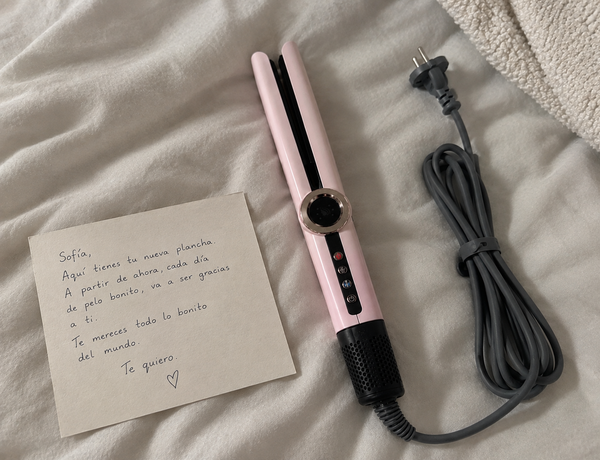 Sofía,
Aquí tienes tu nueva plancha
A partir de ahora, cada día
de pelo bonito, va a ser gracias
a ti.
Te mereces todo lo bonito
del mundo.
Te quiero.